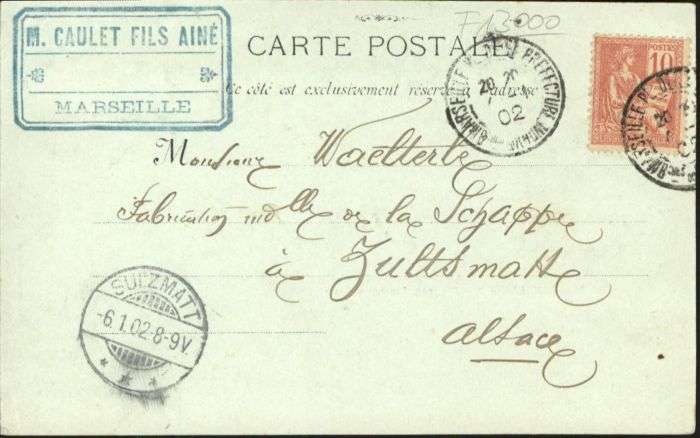 M. CAULET FILS AINÉ
MARSEILLE
CARTE POSTALE
Ce côté est exclusivement réservé à l'adresse
MARSEILLE PREFECTURE
20
02
POSTES
10
MARSEILLE
Monsieur Waelterlé
Fabrication ind lle de la Schappe
à Zultsmatt
Alsace
SULZMATT
-6.1.02.8-9V.